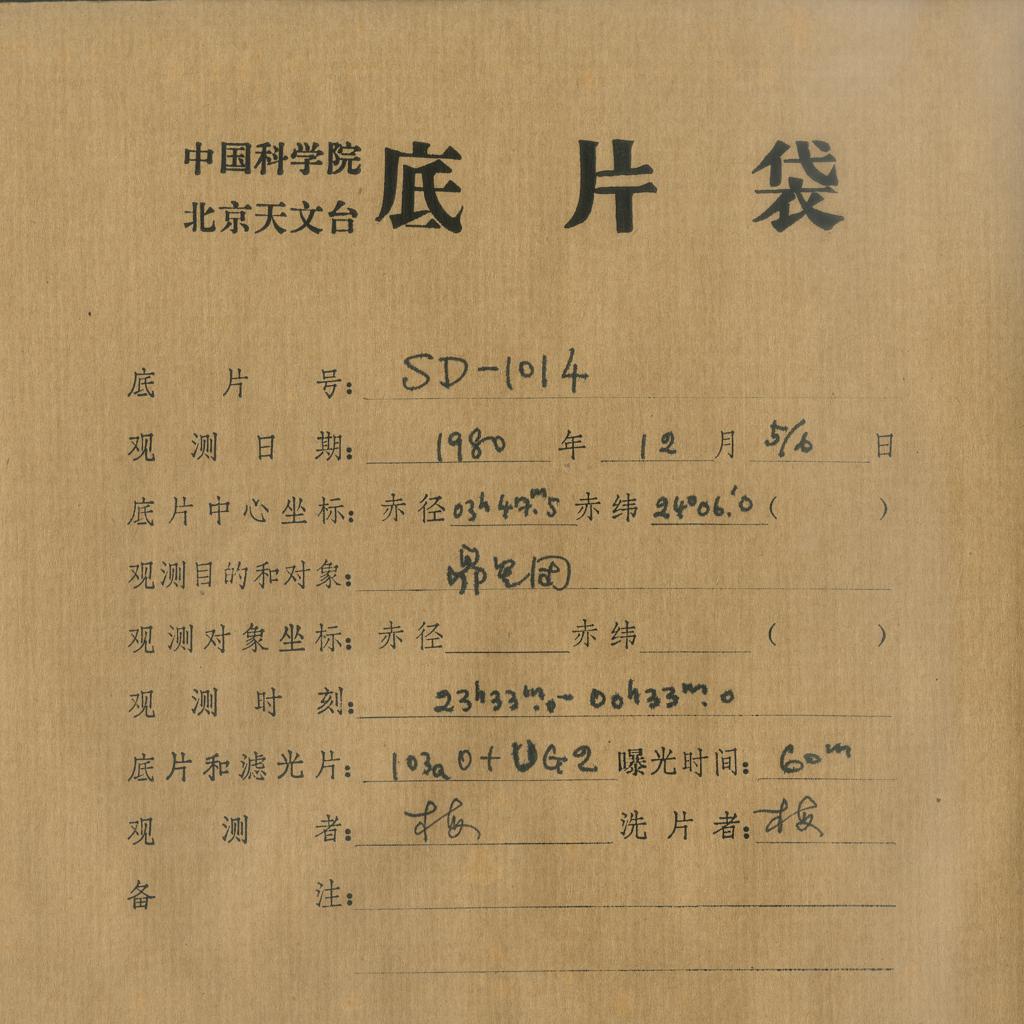 中国科学院
北京天文台
底片袋
底片号：SD-1014
观测日期：1980年12月5/6日
底片中心坐标：赤径03h47m.5赤纬24°06.'0（ ）
观测目的和对象：昴星团
观测对象坐标：赤径 赤纬 （ ）
观测时刻：23h33m.0-00h33m.0
底片和滤光片：103aO+UG2 曝光时间：60m
观测者：梅 洗片者：梅
备注：